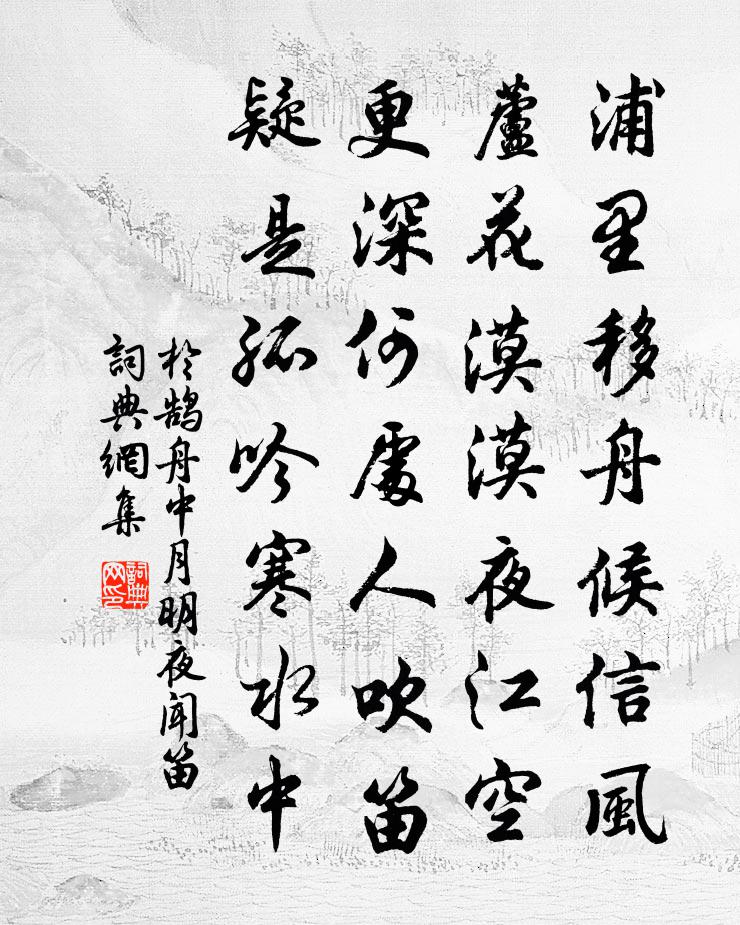 浦里移舟候信風
蘆花漠漠夜江空
更深何處人吹笛
疑是孤吟寒水中
於鵠舟中月明夜聞笛
詞典網集
詞典
网印